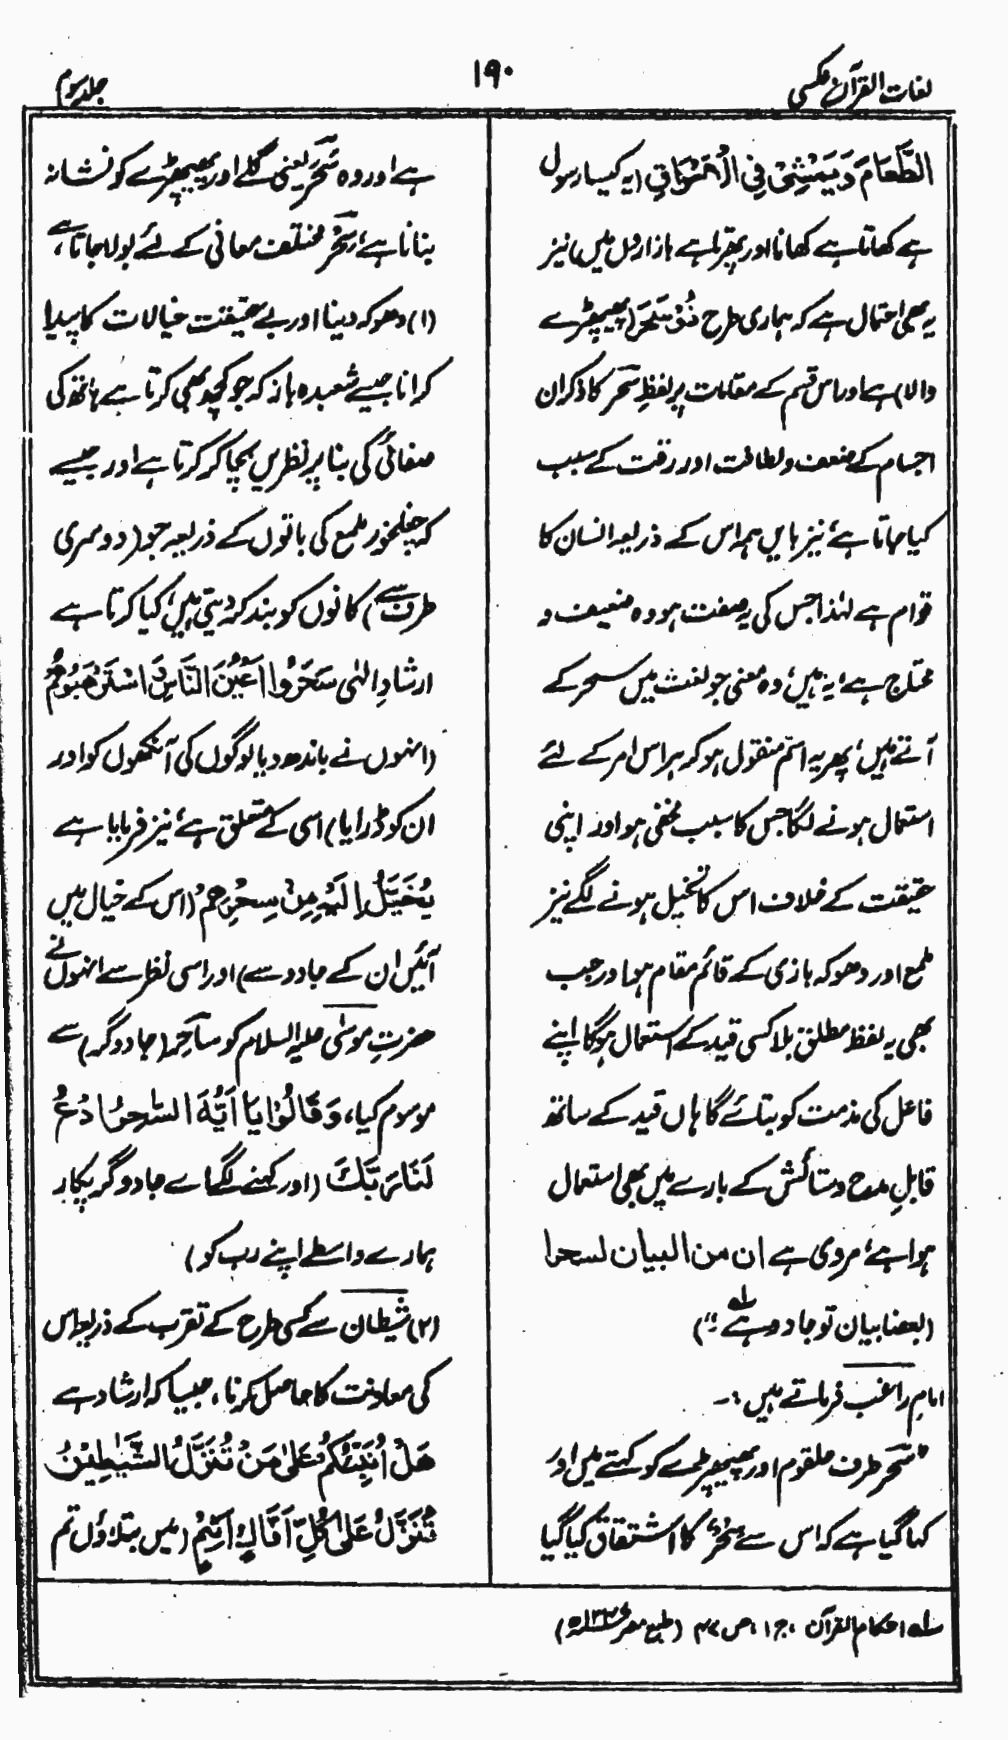 لغات القرآن عکسی
۱۹۰
جلد سوم
الطَّعَامَ وَيَمْشِيْ فِي الْاَسْوَاقِ (یہ کیسا رسول
ہے کھاتا ہے کھانا اور پھرتا ہے بازاروں میں) نیز
یہ بھی احتمال ہے کہ ہماری طرح ذُوْ سَحَر (پھیپھڑے
والا) ہے اور اس قسم کے مقامات پر لفظِ سَحَر کا ذکر ان
اجسام کے ضعف و لطافت اور رقت کے سبب
کیا جاتا ہے، نیز بایں ہمہ اس کے ذریعہ انسان کا
قوام ہے لہٰذا جس کی یہ صفت ہو وہ ضعیف و
محتاج ہے، یہ ہیں، وہ معنی جو لغت میں سحر کے
آتے ہیں، پھر یہ اسم منقول ہو کر ہر اس امر کے لئے
استعمال ہونے لگا جس کا سبب مخفی ہو اور اپنی
حقیقت کے خلاف اس کا تخیل ہونے لگے نیز
ملمع اور دھوکہ بازی کے قائم مقام ہو اور جب
بھی یہ لفظ مطلق بلا کسی قید کے استعمال ہوگا اپنے
فاعل کی مذمت کو بتائے گا ہاں قید کے ساتھ
قابلِ مدح و ستائش کے بارے میں بھی استعمال
ہوا ہے، مروی ہے ان من البیان لسحرا
(بعضا بیان تو جادو ہے ؛") لہ
امام راغب فرماتے ہیں :۔
"سَحَر طرف حلقوم اور پھیپھڑے کو کہتے ہیں اور
کہا گیا ہے کہ اس سے سِحْر کا اشتقاق کیا گیا
ہے اور وہ سَحَر یعنی گلے اور پھیپھڑے کو نشانہ
بنانا ہے، سِحْر مختلف معانی کے لئے بولا جاتا ہے،
(۱) دھوکہ دینا اور بے حقیقت خیالات کا پیدا
کرانا جیسے شعبدہ باز کہ جو کچھ بھی کرتا ہے ہاتھ کی
صفائی کی بنا پر نظریں بچا کر کرتا ہے اور جیسے
کہ چغلخور ملمع کی باتوں کے ذریعہ جو (دوسری
طرف سے) کانوں کو بند کر دیتی ہیں، کیا کرتا ہے
ارشادِ الٰہی سَحَرُوا اَعْيُنَ النَّاسِ وَاسْتَرْهَبُوهُمْ
(انہوں نے باندھ دیا لوگوں کی آنکھوں کو اور
ان کو ڈرایا) اسی کے متعلق ہے، نیز فرمایا ہے
يُخَيَّلُ اِلَيْهِ مِنْ سِحْرِهِمْ (اس کے خیال میں
آئیں ان کے جادو سے) اور اسی نظر سے انہوں نے
حضرتِ موسٰی علیہ السلام کو ساحِر (جادوگر) سے
موسوم کیا، وَقَالُوْا يَا اَيُّهَ السَّاحِرُ ادْعُ
لَنَا رَبَّكَ (اور کہنے لگے اے جادوگر پکار
ہمارے واسطے اپنے رب کو)
(۲) شیطان سے کسی طرح کے تقرب کے ذریعہ اس
کی معاونت کا حاصل کرنا، جیسا کہ ارشاد ہے
هَلْ اُنَبِّئُكُمْ عَلٰى مَنْ تَنَزَّلُ الشَّيٰطِيْنُ
تَنَزَّلُ عَلٰى كُلِّ اَفَّاكٍ اَثِيْمٍ (میں بتلاؤں تم
لہ احکام القرآن، ج ۱، ص ۴۷ (طبع مصر ھ)